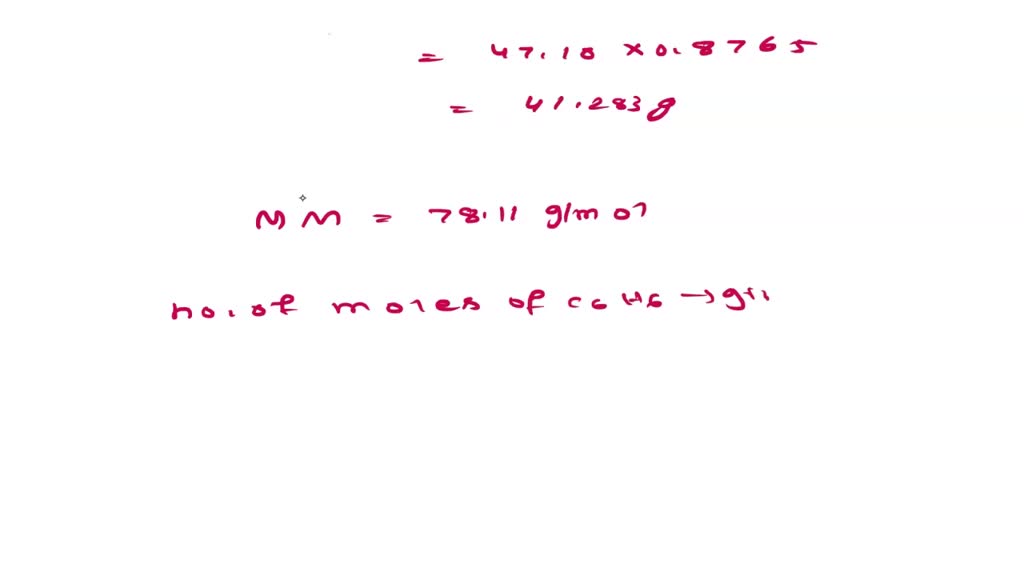 = 47.10 x 0.8765
= 41.283 g
MM = 78.11 g/mol
no. of moles of C6H6 →